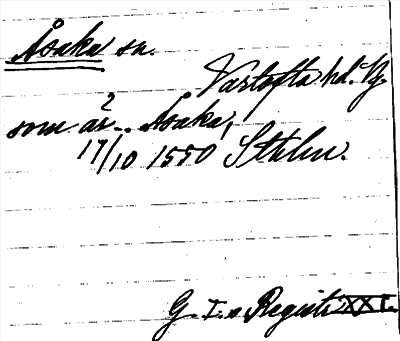 Åsaka sn.
Vartofta hd. Vg.
som är? .. Åsaka,
17/10 1550 Sthlm.
G. I:s Registr. XXI.